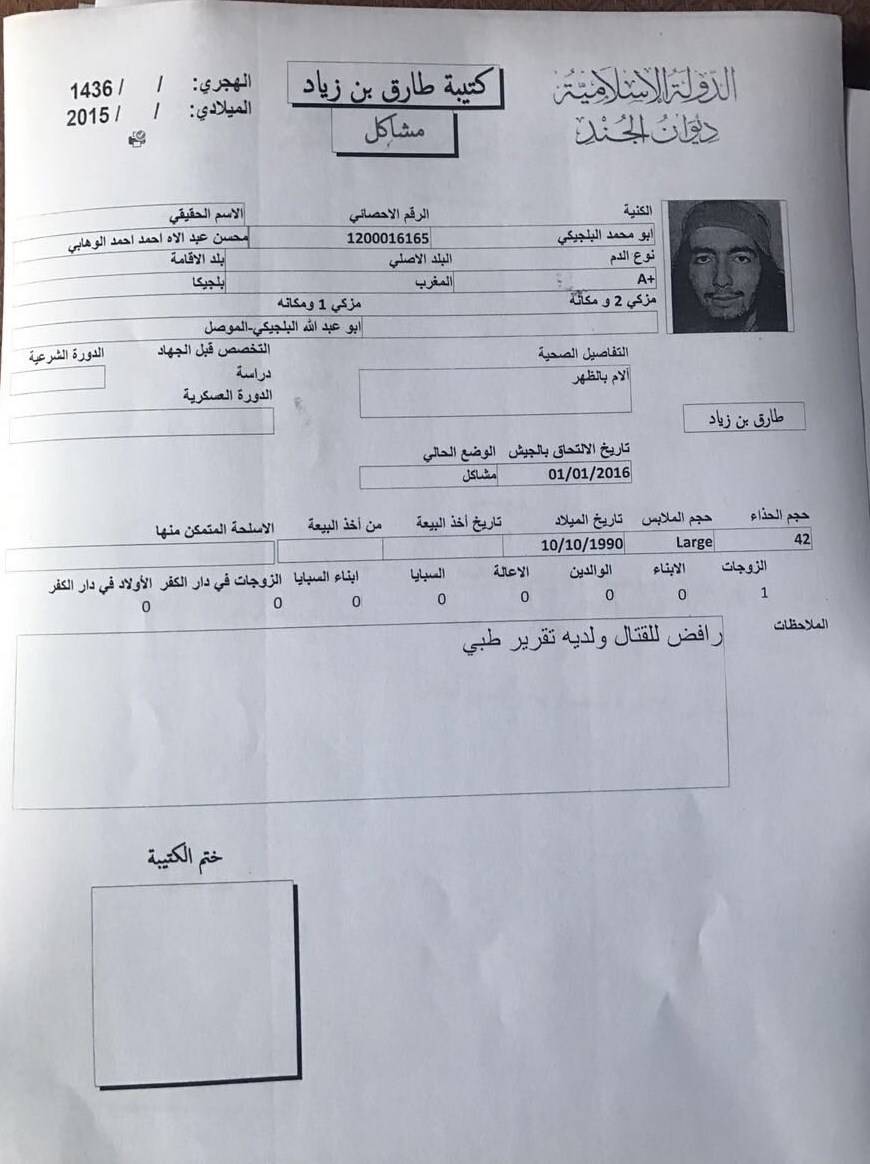 الدولة الإسلامية
ديوان الجند
كتيبة طارق بن زياد
مشاكل
الهجري: / / 1436
الميلادي: / / 2015
الكنية الرقم الاحصائي الاسم الحقيقي
ابو محمد البلجيكي 1200016165 محسن عبد الاه احمد احمد الوهابي
نوع الدم البلد الاصلي بلد الاقامة
A+ المغرب بلجيكا
مزكي 2 و مكانة مزكي 1 ومكانه
ابو عبد الله البلجيكي-الموصل
التفاصيل الصحية التخصص قبل الجهاد الدورة الشرعية
آلام بالظهر دراسة
الدورة العسكرية
طارق بن زياد
تاريخ الالتحاق بالجيش الوضع الحالي
01/01/2016 مشاكل
حجم الحذاء حجم الملابس تاريخ الميلاد تاريخ أخذ البيعة من أخذ البيعة الاسلحة المتمكن منها
42 Large 10/10/1990
الزوجات الابناء الوالدين الاعالة السبايا ابناء السبايا الزوجات في دار الكفر الأولاد في دار الكفر
1 0 0 0 0 0 0 0
الملاحظات
رافض للقتال ولديه تقرير طبي
ختم الكتيبة